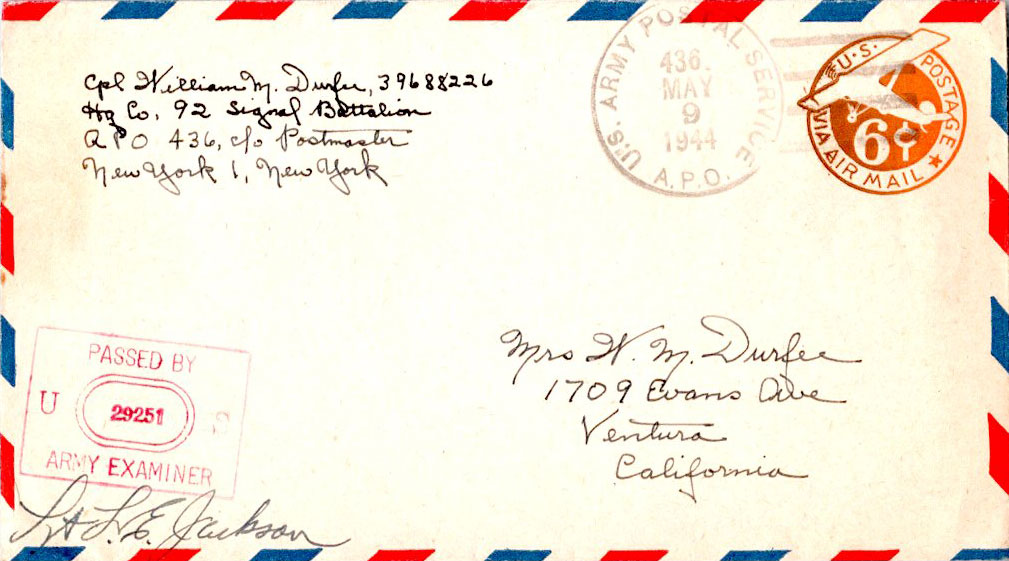 Cpl William M. Durfee, 39688226
Hq Co, 92 Signal Battalion
A P O 436, c/o Postmaster
New York 1, New York
U.S. ARMY POSTAL SERVICE
436.
MAY
9
1944
A.P.O.
U.S. POSTAGE
6¢
VIA AIR MAIL
Mrs W. M. Durfee
1709 Evans Ave
Ventura
California
PASSED BY
U 29251 S
ARMY EXAMINER
Lt L. E. Jackson